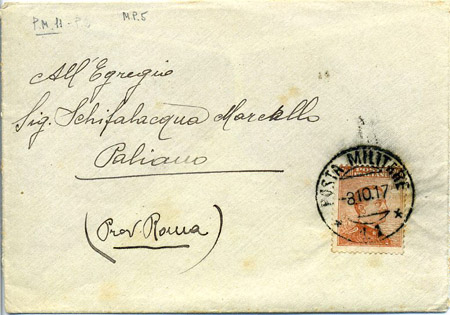 P.M. 11 - P.
M.P.5
All'Egregio
Sig. Schifalacqua Marcello
Paliano
(Prov. Roma)
POSTA MILITARE
-8.10.17
* 11 *